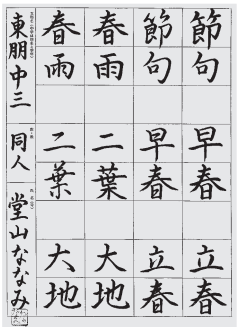 節句
早春
立春
節句
早春
立春
春雨
二葉
大地
春雨
二葉
大地
東朋中三
同人
堂山ななみ